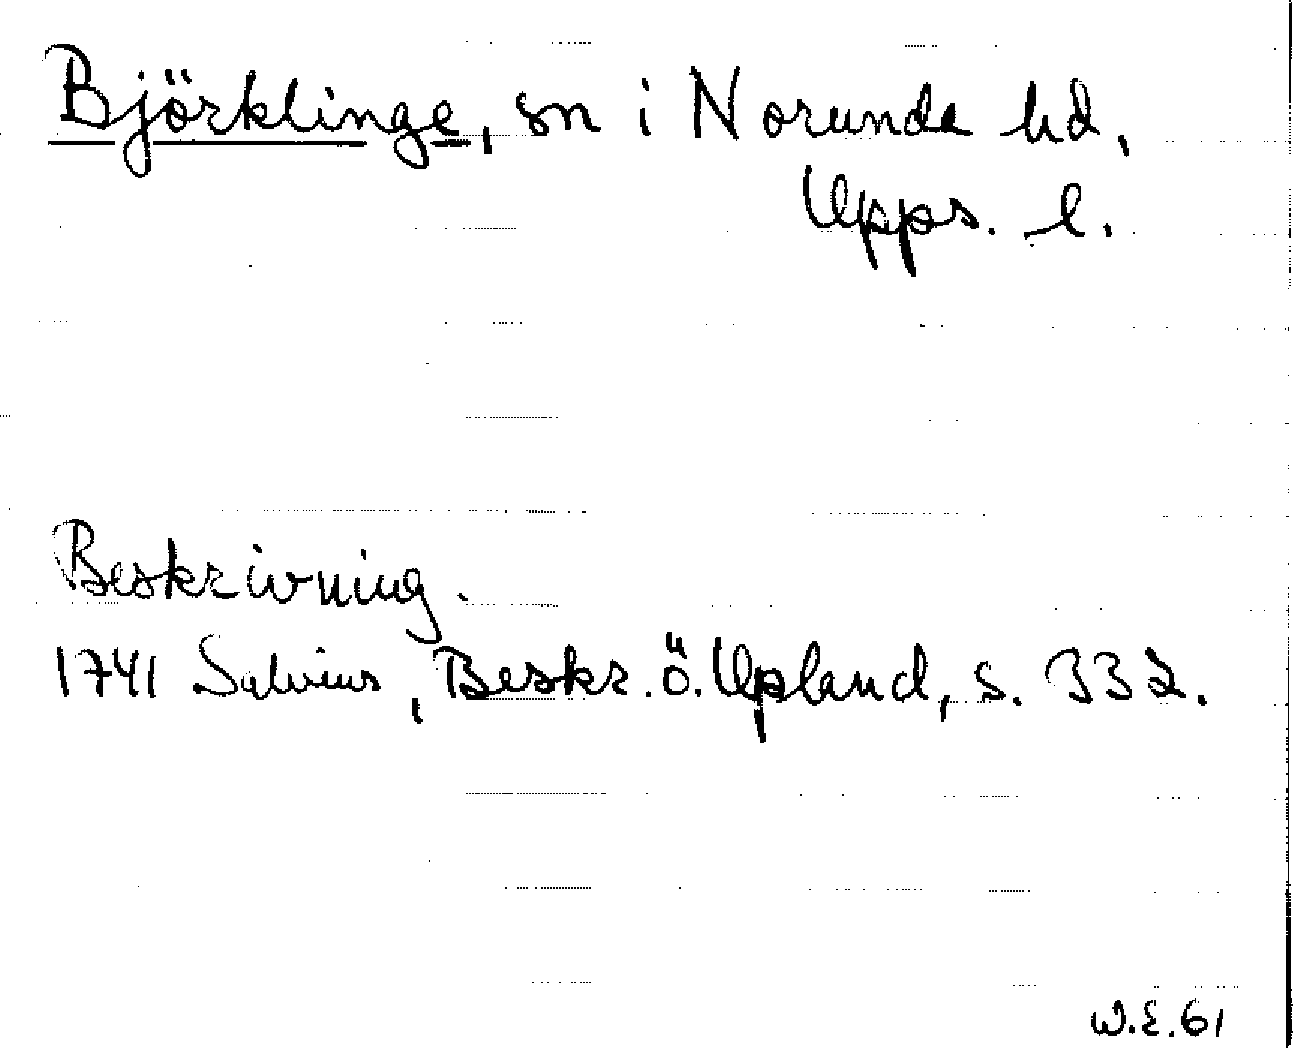 Björklinge, sn i Norunda hd,
Upps. l.
Beskrivning.
1741 Salvius, Beskr. ö. Upland, s. 332.
W.E.61